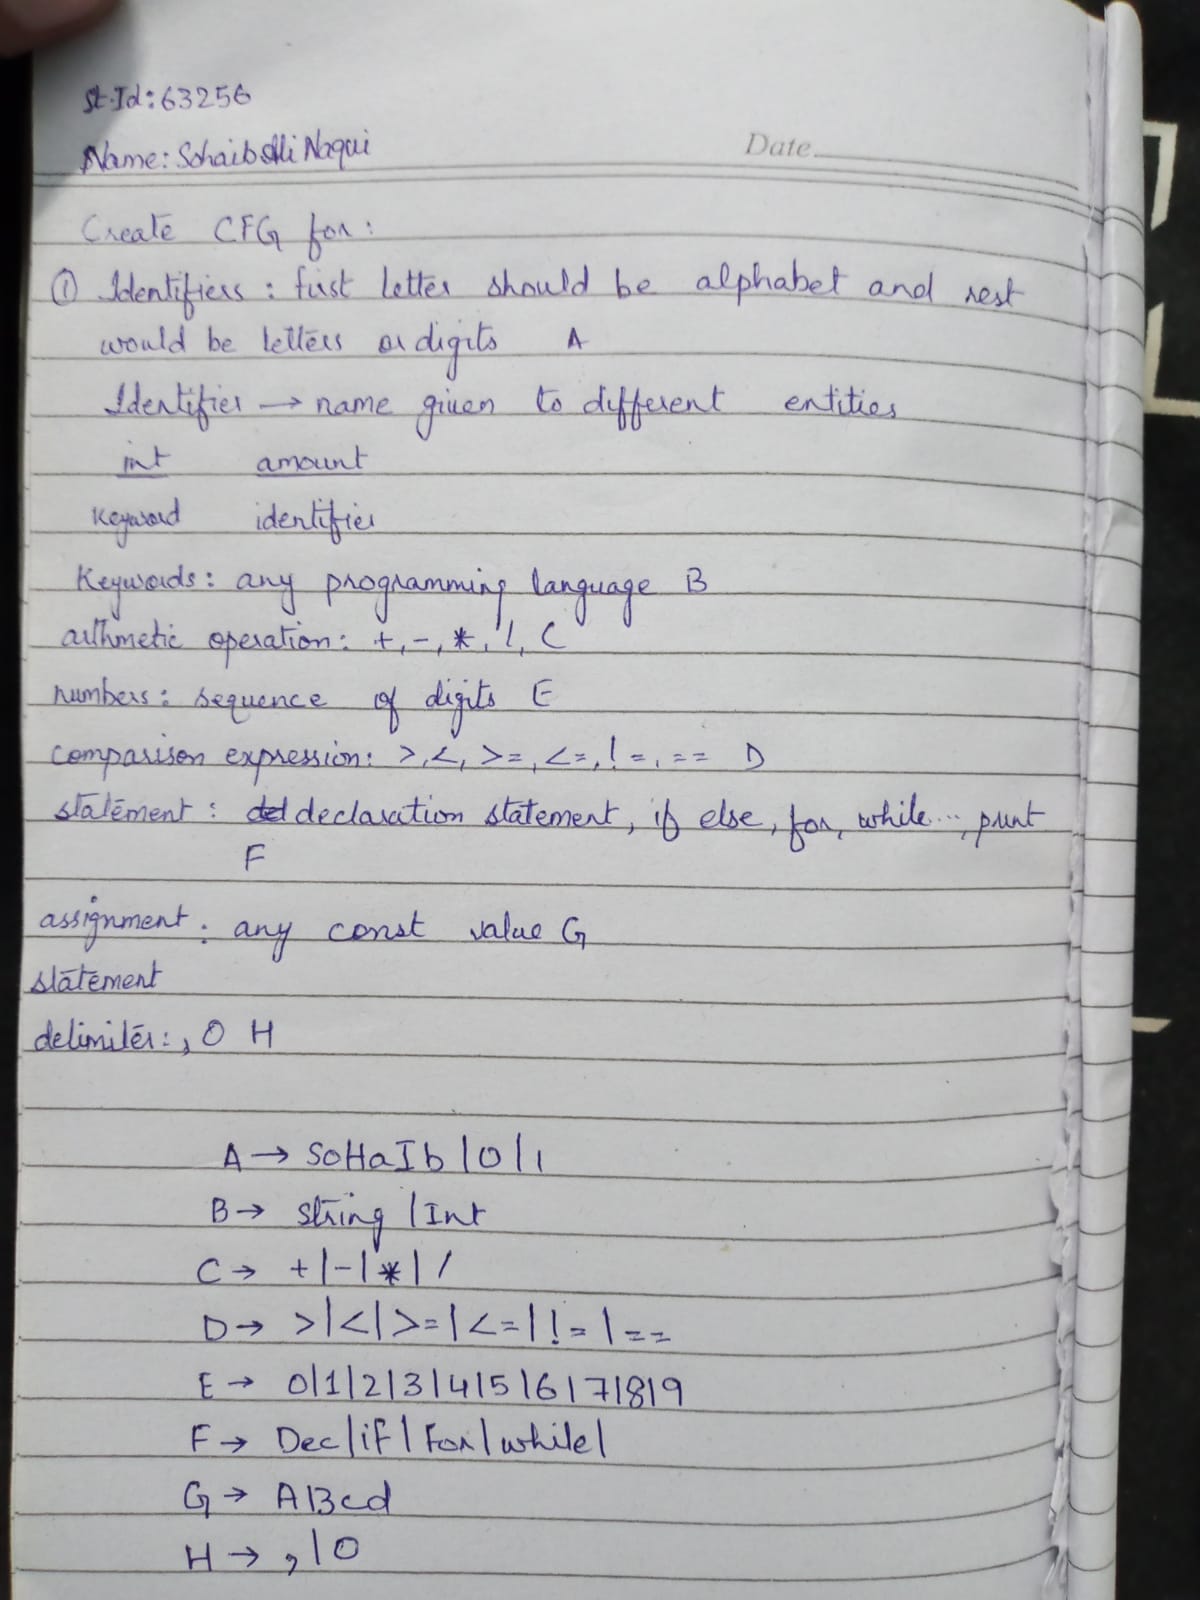 St.Id: 63256
Name: Sohaib Ali Naqui
Date
Create CFG for:
① Identifiers: first letter should be alphabet and rest
would be letters or digits A
Identifier → name given to different entities
int amount
Keyword identifier
Keywords: any programming language B
arithmetic operation: +, -, *, /, C
numbers: sequence of digits E
comparison expression: >, <, >=, <=, !=, == D
statement: declaration statement, if else, for, while..., print
F
assignment: any const value G
statement
delimiter: , () H
A → SoHaIb|0|1
B → string|Int
C → +|-|*|/
D → >|<|>=|<=|!=|==
E → 0|1|2|3|4|5|6|7|8|9
F → Dec|if|For|while|
G → ABcd
H → ,|()